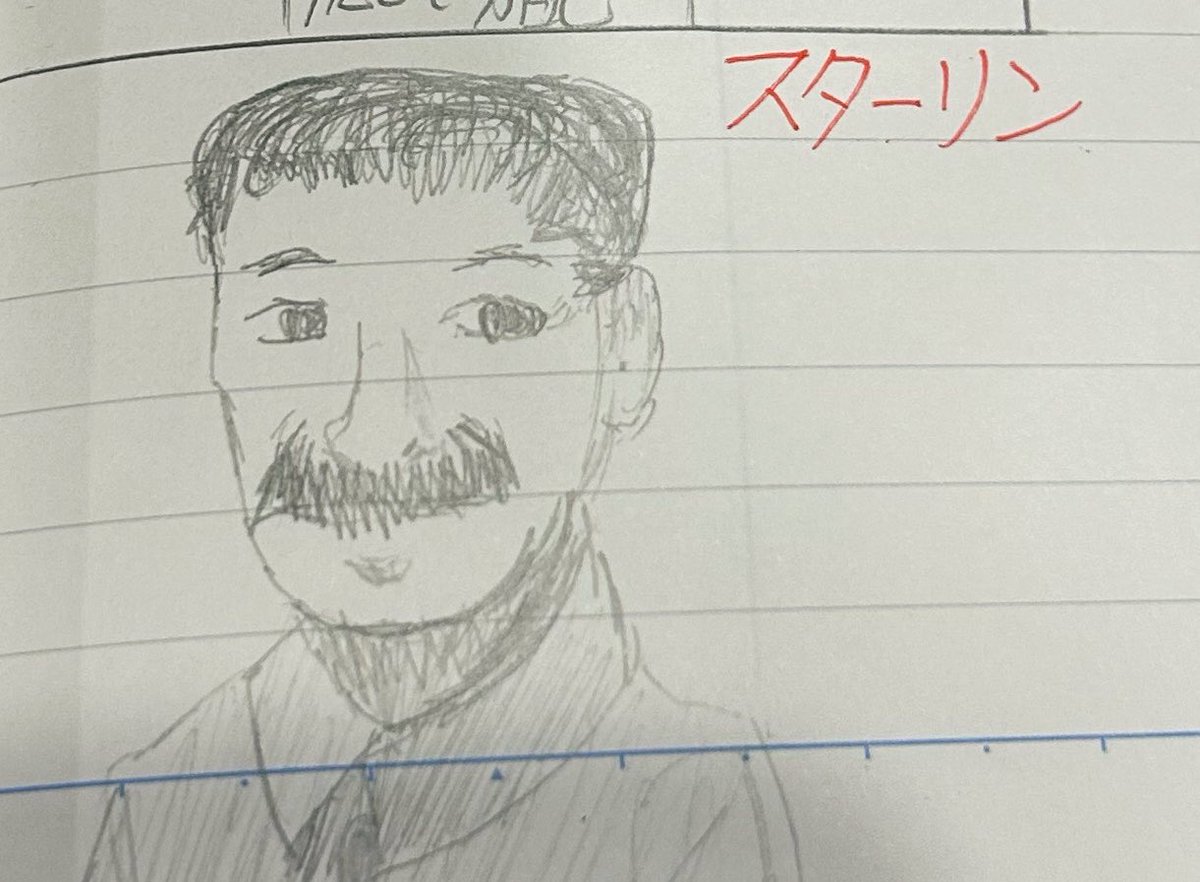 スターリン